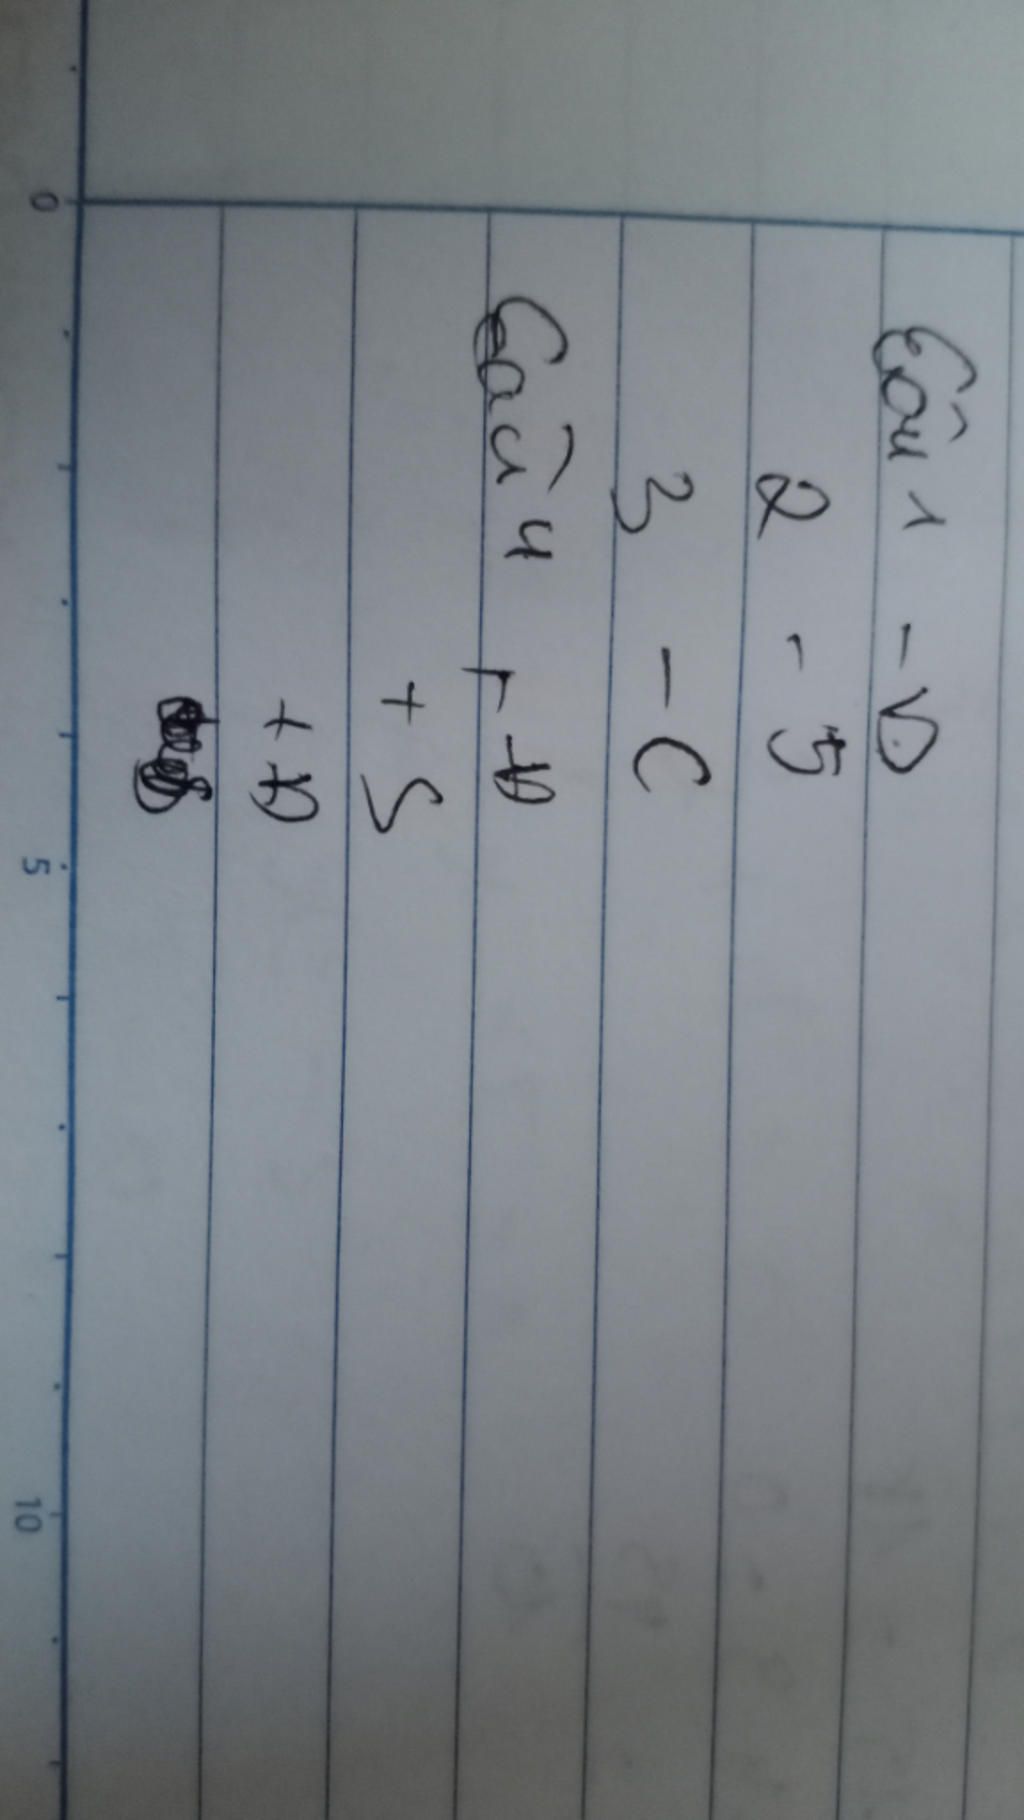 Câu 1 - D
2 - 5
3 - C
Câu 4 - Đ
+ S
+ Đ
0 5 10